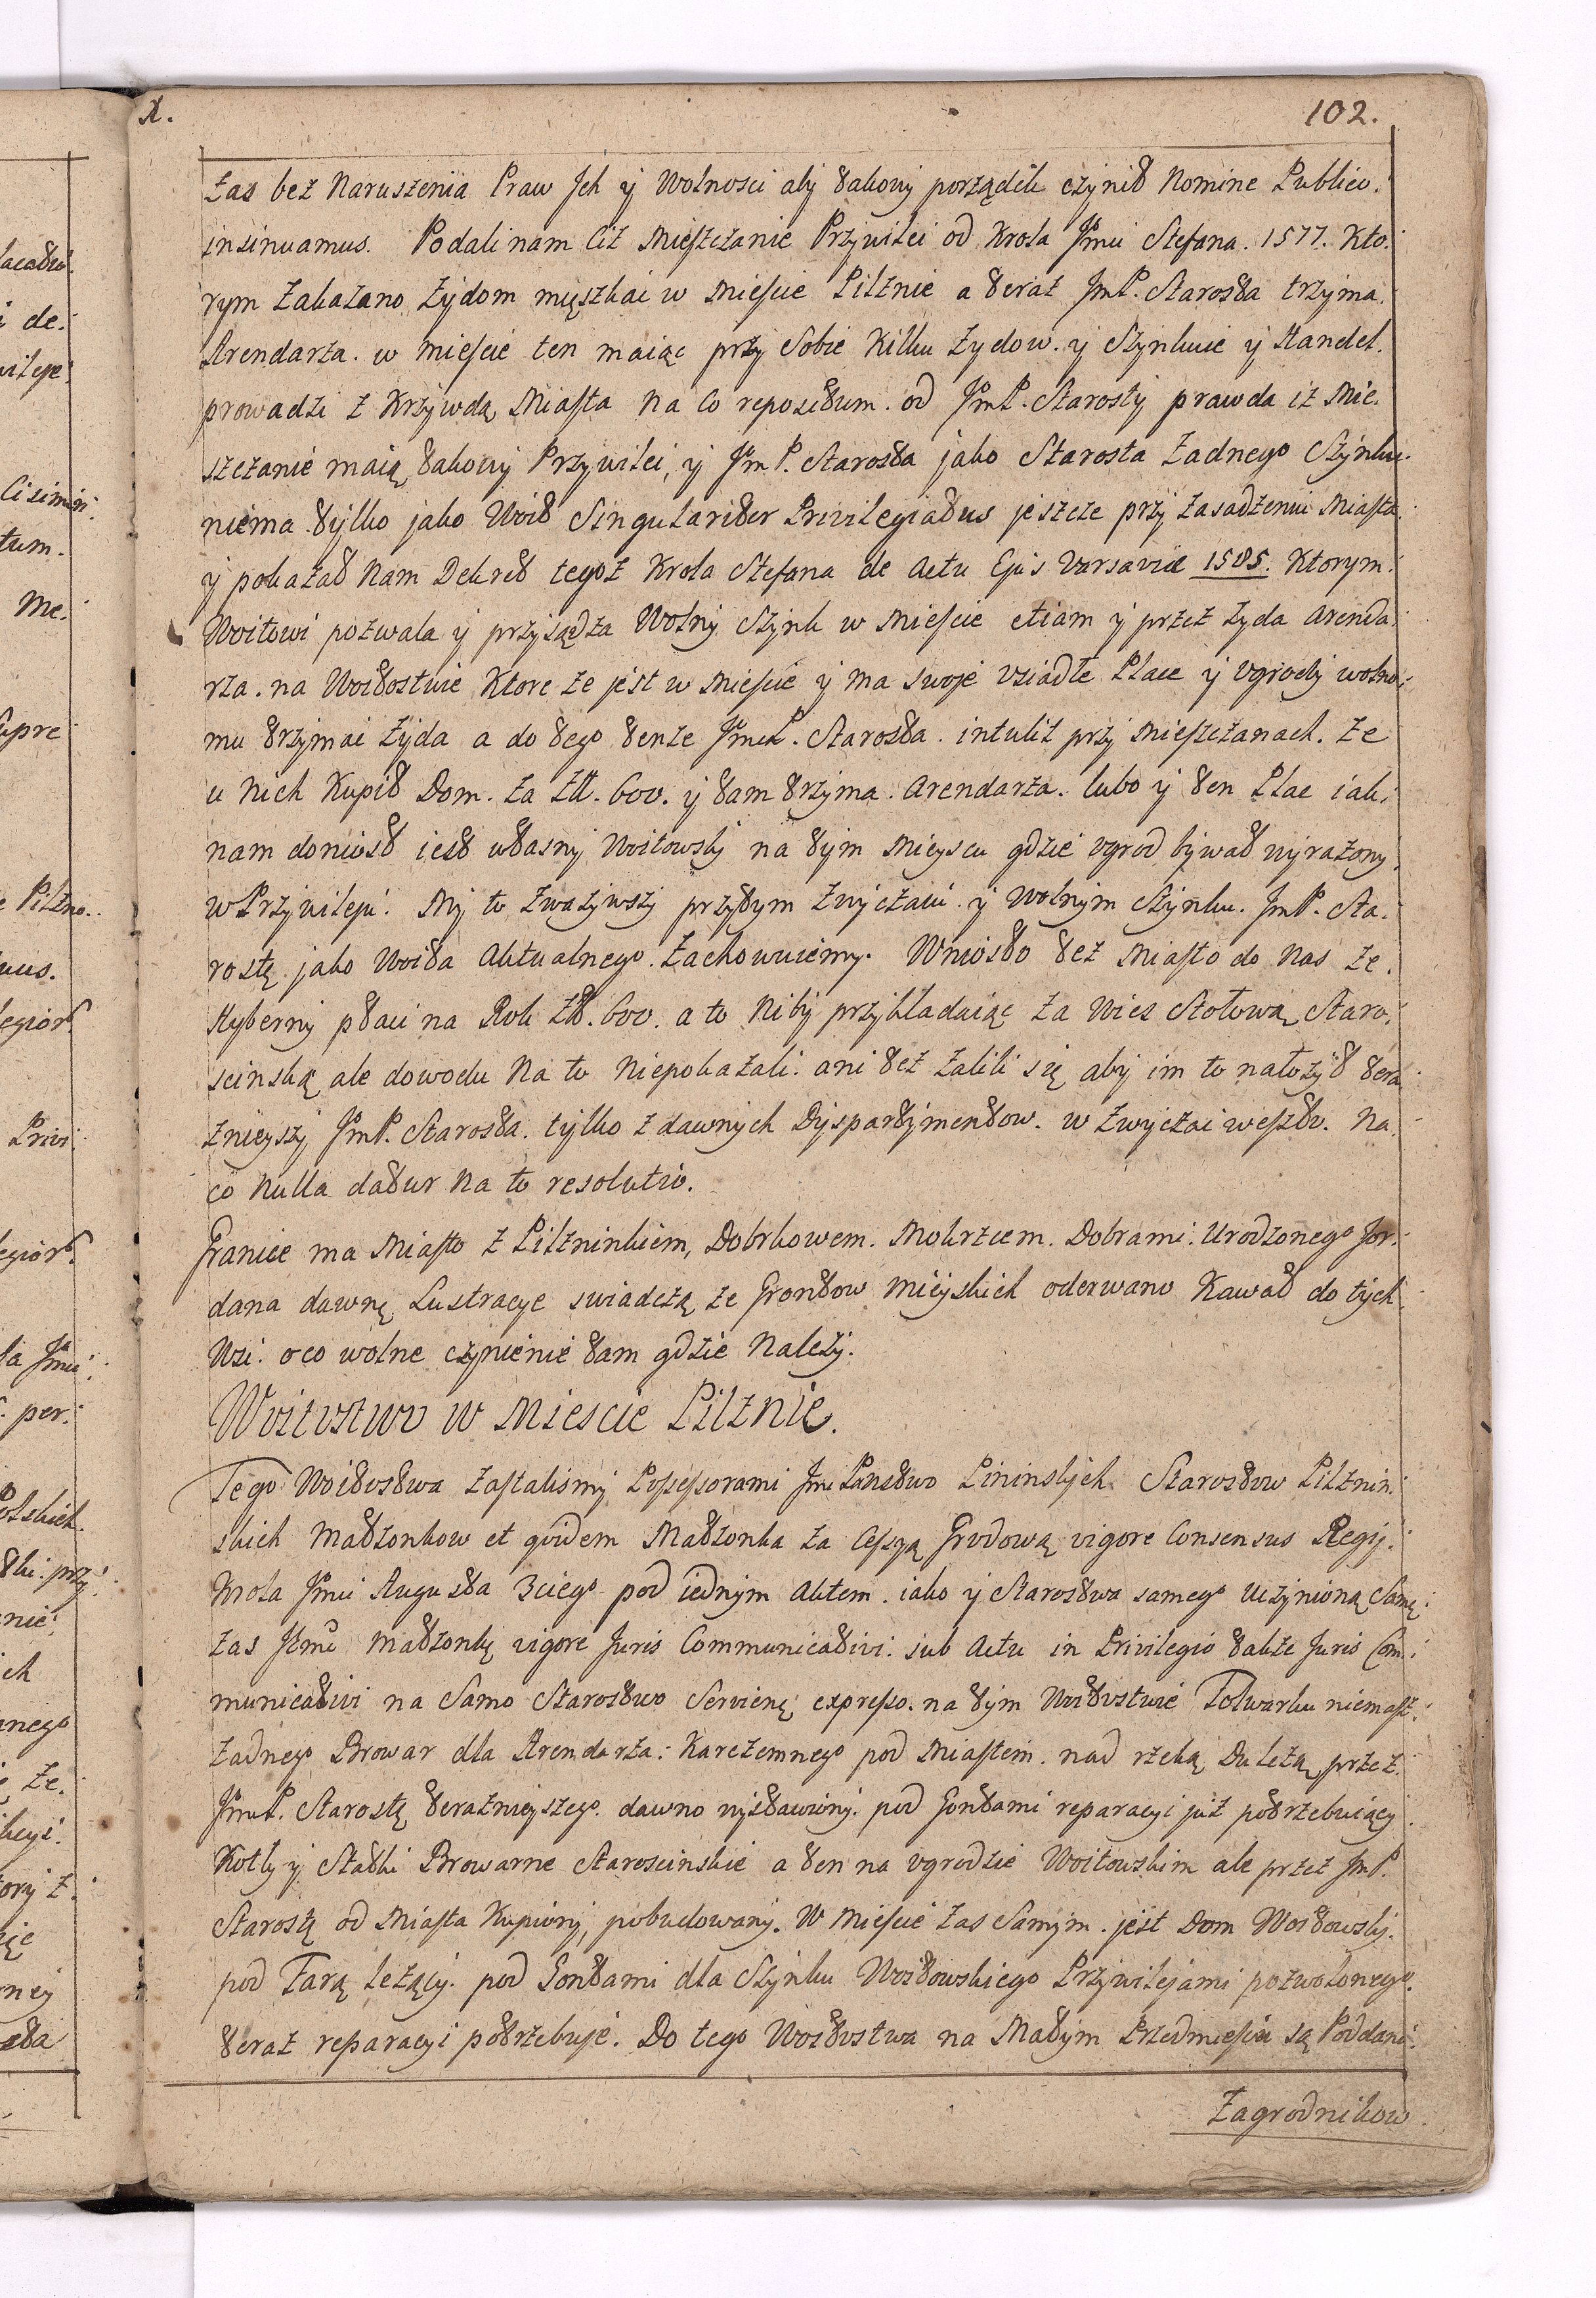 X. 102.
zas bez Naruszenia Praw Jch y Wolnosci aby takowy porządek czynił Nomine Publico.
insinuamus. Podali nam Ciż Mieszczanie Przywilei od Krola Jmci Stefana. 1577. Kto.
rym Zakazano Żydom męszkac w Miescie Pilznie a teraz JmP. Starosta trzyma.
Arendarza. w Miescie ten maiąc przy Sobie Kilku Zydow. y Szynkuie y Handel.
prowadzi z Krzywdą Miasta Na Co repositum. od JmP. Starosty prawda iż Mie.
szczanie maią takowy Przywilei, y JmP. Starosta jako Starosta Zadnego Szynku.
niema tylko jako Woit Singulariter Privilegiatus jeszcze przy Zasadzeniu Miasta.
y pokazał Nam Dekret tegoż Krola Stefana de Actu Ejus Varsaviæ 1585. Ktorym.
Woitowi pozwala y przysądza Wolny Szynk w Miescie etiam y przez Zyda Arenda.
rza. na Woitostwie Ktore ze jest w Miescie y ma swoje osiadłe Place y Ogrody wolno.
mu trzymac Zyda a do tego tenze JmP. Starosta. intulit przy Mieszczanach. Ze
u Nich Kupił Dom. za Zł. 600. y tam trzyma. Arendarza. lubo y ten Plac iak.
nam doniosł iest własny Woitowski na tym Mieyscu gdzie ogrod bywał wyrazony.
w Przywileju. My to Zwazywszy przytym Zwyczaiu. y Wolnym Szynku. JmP. Sta.
rostę jako Woita Aktualnego. Zachowuiemy. Wniosło też Miasto do Nas Ze.
Hyberny płaci na Rok Zł. 600. a to Niby przykładaiąc za Wies Stołową Staro.
scinską ale dowodu Na to Niepokazali. ani też Zalili się aby im to nałozył tera
znieyszy JmP. Starosta. tylko z dawnych Dyspartymentow. w Zwyczai weszło. Na.
co Nulla datur Na to resolutio.
Granice ma Miasto z Pilzninkiem, Dobrkowem. Mokrzcem. Dobrami. Urodzonego Jor.
dana dawne Lustracye swiadczą ze Grontow Mieyskich oderwano Kawał do tych.
Wsi. oco wolne czynienie tam gdzie Nalezy.
Woitostwo w Miescie Pilznie.
Tego Woitostwa Zastalismy Possessorami Jmc Panstwo Lininskych Starostow Pilznin.
skich Małżonkow et quidem Małżonka za Cessyą Grodową vigore Consensus Regij.
Krola Jmci Augusta 3ciego pod iednym Aktem. iako y Starostwa samego Uczynioną Samę.
zas Jeymc Małżonkę vigore Juris Communicativi. sub Actu in Privilegio także Juris Com.
municativi na Samo Starostwo Servienę expresso. na tym Woitostwie Folwarku niemasz.
Zadnego Browar dla Arendarza. Karczemnego pod Miastem. nad rzeką Dulczą, przez.
JmP. Starostę teraznieyszego. dawno wystawiony. pod Gontami reparacyi już potrzebuiący.
Kotły y Statki Browarne Staroscinskie a ten na ogrodzie Woitowskim ale przez JmP.
Starostę od Miasta Kupiony, pobudowany. W Miescie zas Samym. jest Dom Woitowsky.
pod Farą Lezący. pod Gontami dla Szynku Woitowskiego Przywilejami pozwolonego.
teraz reparacyi potrzebuje. Do tego Woitostwa na Małym Przedmiesciu są Poddani.
Zagrodnikow.